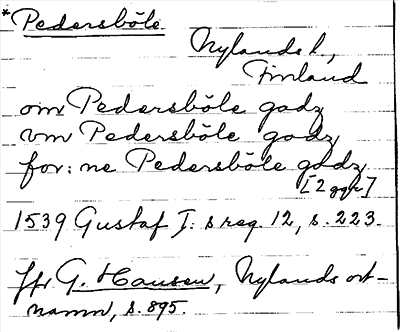 *Pedersböle.
Nylands l.,
Finland
om Pedersböle godz
vm Pedersböle godz
for: ne Pedersböle godz
[2 ggr]
1539 Gustaf I:s reg. 12, s. 223.
Jfr G. Hausen, Nylands ort-
namn, s. 895.